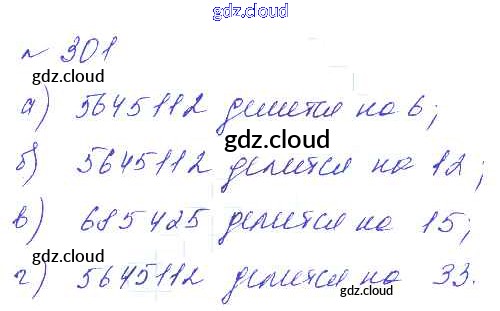 gdz.cloud
№ 301
gdz.cloud
а) 5645112 делится на 6;
gdz.cloud
б) 5645112 делится на 12;
в) 685425 делится на 15;
gdz.cloud
г) 5645112 делится на 33.
gdz.cloud